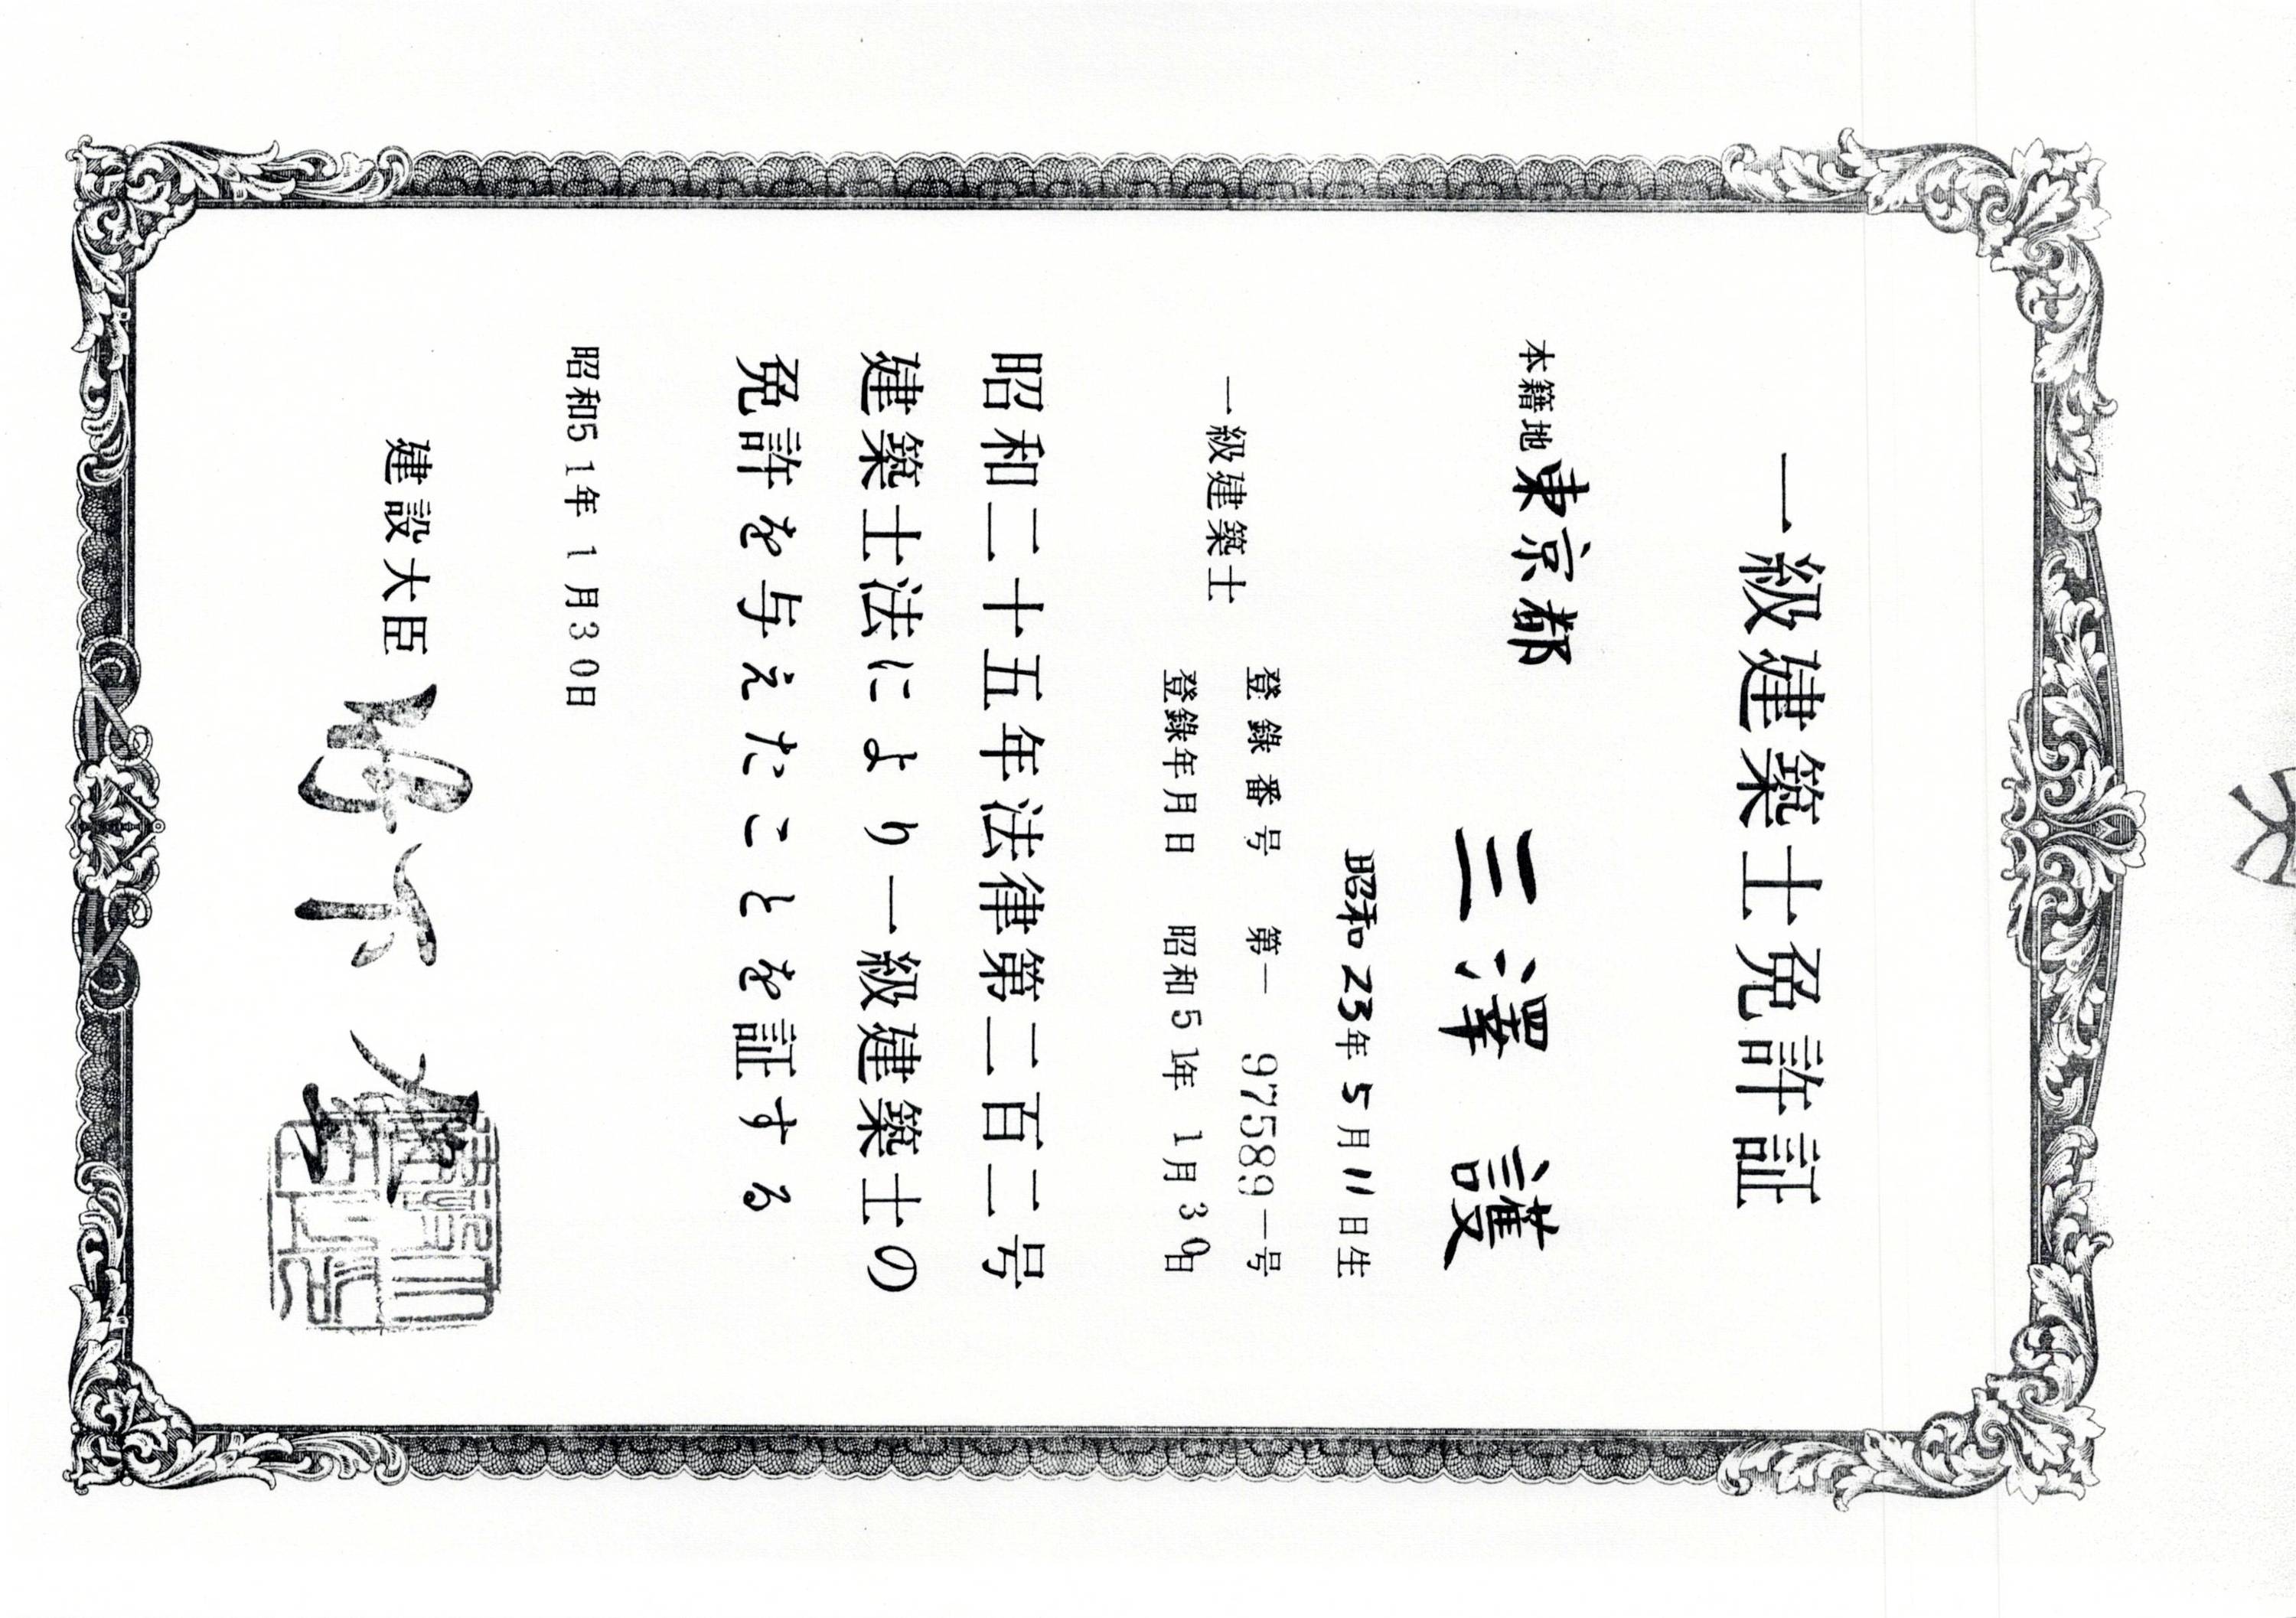 一級建築士免許証
本籍地 東京都
三澤 護
昭和23年5月11日生
一級建築士
登録番号 第—97589—号
登録年月日 昭和51年1月30日
昭和二十五年法律第二百二号
建築士法により一級建築士の
免許を与えたことを証する
昭和51年1月30日
建設大臣 竹下 登